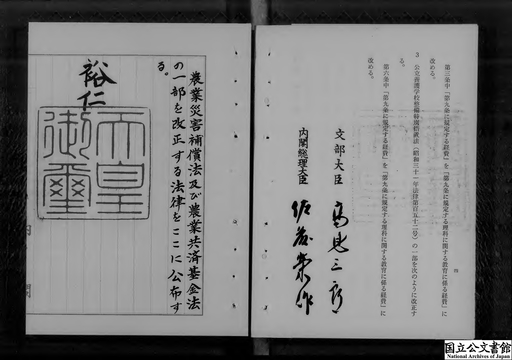 第三条中「第九条に規定する経費」を「第九条に規定する理科に関する教育に係る経費」に
改める。
3 公立養護学校整備特別措置法(昭和三十一年法律第百五十二号)の一部を次のように改正す
る。
第六条中「第九条に規定する経費」を「第九条に規定する理科に関する教育に係る経費」に
改める。
文部大臣
内閣総理大臣 佐藤榮作
農業災害補償法及び農業共済基金法
の一部を改正する法律をここに公布す
る。
裕仁
天皇
御璽
国立公文書館
National Archives of Japan